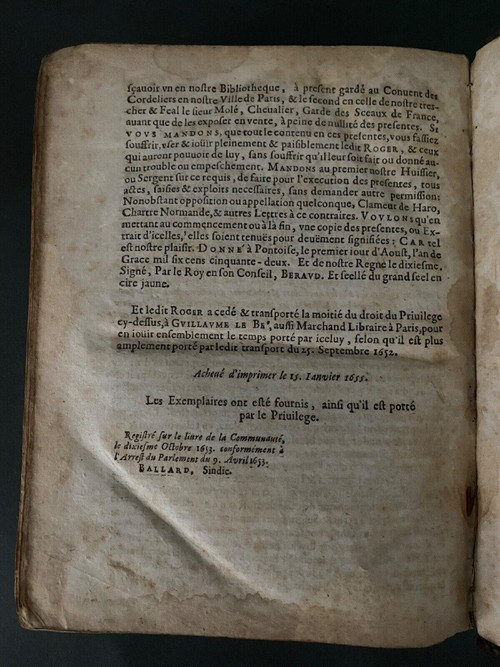 sçauoir vn en nostre Bibliotheque, à present gardé au Conuent des
Cordeliers en nostre Ville de Paris, & le second en celle de nostre tres-
cher & Feal le sieur Molé, Cheualier, Garde des Sceaux de France,
auant que de les exposer en vente, à peine de nullité des presentes. SI
VOVS MANDONS, que tout le contenu en ces presentes, vous fassiez
souffrir, vser & ioüir pleinement & paisiblement ledit ROGER, & ceux
qui auront pouuoir de luy, sans souffrir qu'il leur soit fait ou donné au-
cun trouble ou empeschement. MANDONS au premier nostre Huissier,
ou Sergent sur ce requis, de faire pour l'execution des presentes, tous
actes, saisies & exploits necessaires, sans demander autre permission:
Nonobstant opposition ou appellation quelconque, Clameur de Haro,
Chartre Normande, & autres Lettres à ce contraires. VOVLONS qu'en
mettant au commencement ou à la fin, vne copie des presentes, ou Ex-
trait d'icelles, elles soient tenuës pour deuëment signifiées: CAR tel
est nostre plaisir. DONNE' à Pontoise, le premier iour d'Aoust, l'an de
Grace mil six cens cinquante-deux. Et de nostre Regne le dixiesme.
Signé, Par le Roy en son Conseil, BERAVD. Et seellé du grand seel en
cire jaune.
Et ledit ROGER a cedé & transporté la moitié du droit du Priuilege
cy-dessus, à GVILLAVME LE BE', aussi Marchand Libraire à Paris, pour
en ioüir ensemblement le temps porté par iceluy, selon qu'il est plus
amplement porté par ledit transport du 25. Septembre 1652.
Acheué d'imprimer le 15. Ianvier 1655.
Les Exemplaires ont esté fournis, ainsi qu'il est porté
par le Priuilege.
Registré sur le liure de la Communauté,
le dixiesme Octobre 1653. conformément à
l'Arrest du Parlement du 9. Avril 1653.
BALLARD, Sindic.